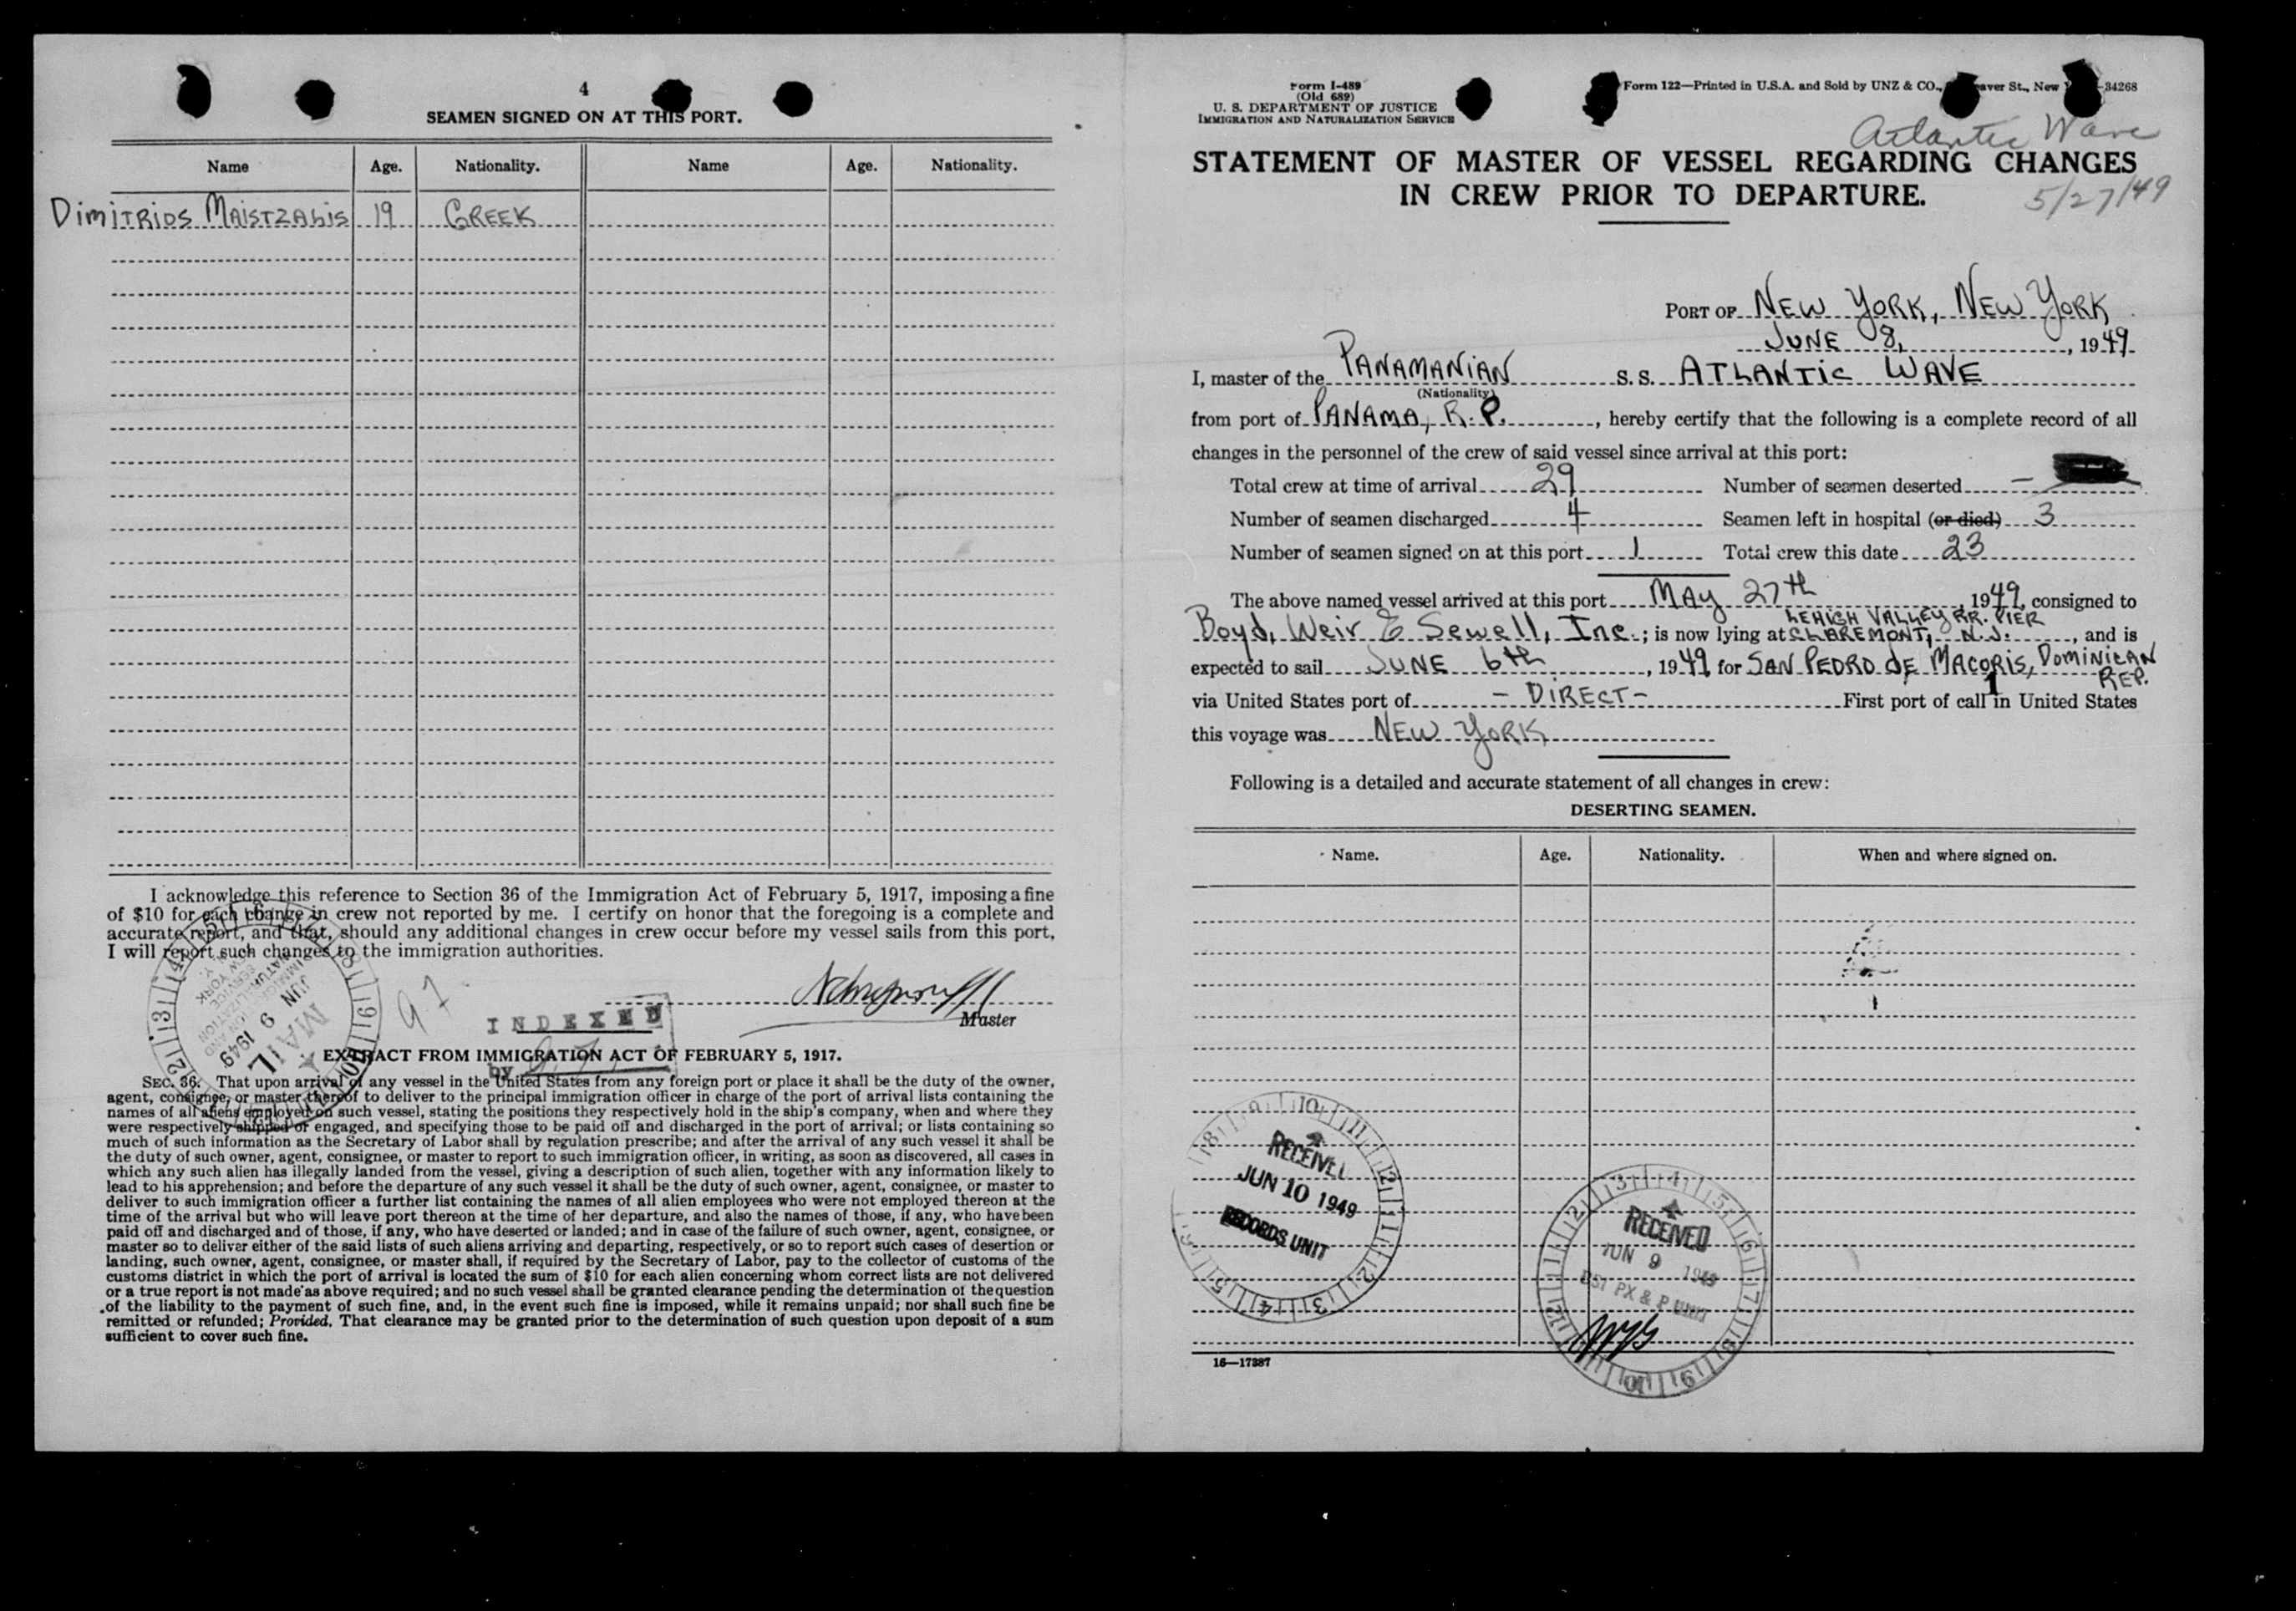 4
SEAMEN SIGNED ON AT THIS PORT.
Name Age. Nationality. Name Age. Nationality.
DIMITRIOS MAISTZABIS 19 GREEK
I acknowledge this reference to Section 36 of the Immigration Act of February 5, 1917, imposing a fine
of $10 for each change in crew not reported by me. I certify on honor that the foregoing is a complete and
accurate report, and that, should any additional changes in crew occur before my vessel sails from this port,
I will report such changes to the immigration authorities.
MAIL
JUN 9 1949
97
Master
INDEXED
by
EXTRACT FROM IMMIGRATION ACT OF FEBRUARY 5, 1917.
SEC. 36. That upon arrival of any vessel in the United States from any foreign port or place it shall be the duty of the owner,
agent, consignee, or master thereof to deliver to the principal immigration officer in charge of the port of arrival lists containing the
names of all aliens employed on such vessel, stating the positions they respectively hold in the ship's company, when and where they
were respectively shipped or engaged, and specifying those to be paid off and discharged in the port of arrival; or lists containing so
much of such information as the Secretary of Labor shall by regulation prescribe; and after the arrival of any such vessel it shall be
the duty of such owner, agent, consignee, or master to report to such immigration officer, in writing, as soon as discovered, all cases in
which any such alien has illegally landed from the vessel, giving a description of such alien, together with any information likely to
lead to his apprehension; and before the departure of any such vessel it shall be the duty of such owner, agent, consignee, or master to
deliver to such immigration officer a further list containing the names of all alien employees who were not employed thereon at the
time of the arrival but who will leave port thereon at the time of her departure, and also the names of those, if any, who have been
paid off and discharged and of those, if any, who have deserted or landed; and in case of the failure of such owner, agent, consignee, or
master so to deliver either of the said lists of such aliens arriving and departing, respectively, or so to report such cases of desertion or
landing, such owner, agent, consignee, or master shall, if required by the Secretary of Labor, pay to the collector of customs of the
customs district in which the port of arrival is located the sum of $10 for each alien concerning whom correct lists are not delivered
or a true report is not made as above required; and no such vessel shall be granted clearance pending the determination of the question
of the liability to the payment of such fine, and, in the event such fine is imposed, while it remains unpaid; nor shall such fine be
remitted or refunded; Provided, That clearance may be granted prior to the determination of such question upon deposit of a sum
sufficient to cover such fine.
Form I-489
(Old 689)
U. S. DEPARTMENT OF JUSTICE
IMMIGRATION AND NATURALIZATION SERVICE
Form 122—Printed in U.S.A. and Sold by UNZ & CO., aver St., New -34268
Atlantic Wave
STATEMENT OF MASTER OF VESSEL REGARDING CHANGES
IN CREW PRIOR TO DEPARTURE.
5/27/49
PORT OF NEW YORK, NEW YORK
JUNE 8, 1949
I, master of the PANAMANIAN S. S. ATLANTIC WAVE
(Nationality)
from port of PANAMA, R.P., hereby certify that the following is a complete record of all
changes in the personnel of the crew of said vessel since arrival at this port:
Total crew at time of arrival 29 Number of seamen deserted —
Number of seamen discharged 4 Seamen left in hospital (or died) 3
Number of seamen signed on at this port 1 Total crew this date 23
The above named vessel arrived at this port MAY 27th 1949, consigned to
LEHIGH VALLEY RR. PIER
Boyd, Weir & Sewell, Inc.; is now lying at CLAREMONT, N.J., and is
expected to sail JUNE 6th, 1949 for SAN PEDRO de MACORIS, DOMINICAN
REP.
via United States port of - DIRECT - First port of call in United States
this voyage was NEW YORK
Following is a detailed and accurate statement of all changes in crew:
DESERTING SEAMEN.
Name. Age. Nationality. When and where signed on.
RECEIVED
JUN 10 1949
RECORDS UNIT
RECEIVED
JUN 9 1949
D51 PX & P UNIT
16—17387